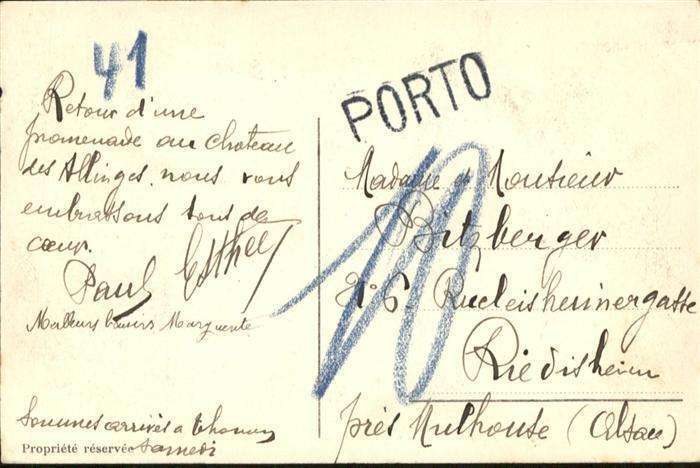 41
Retour d'une
promenade au Chateau
des Allinges. nous vous
embrassons tous de
cœur.
Paul Esther
Meilleurs baisers Marguerite
Sommes arrivés a Thonon
samedi
Propriété réservée
PORTO
10
Madame & Monsieur
Bitzberger
N° 6. Ruedisheimergasse
Riedisheim
près Mulhouse (Alsace)